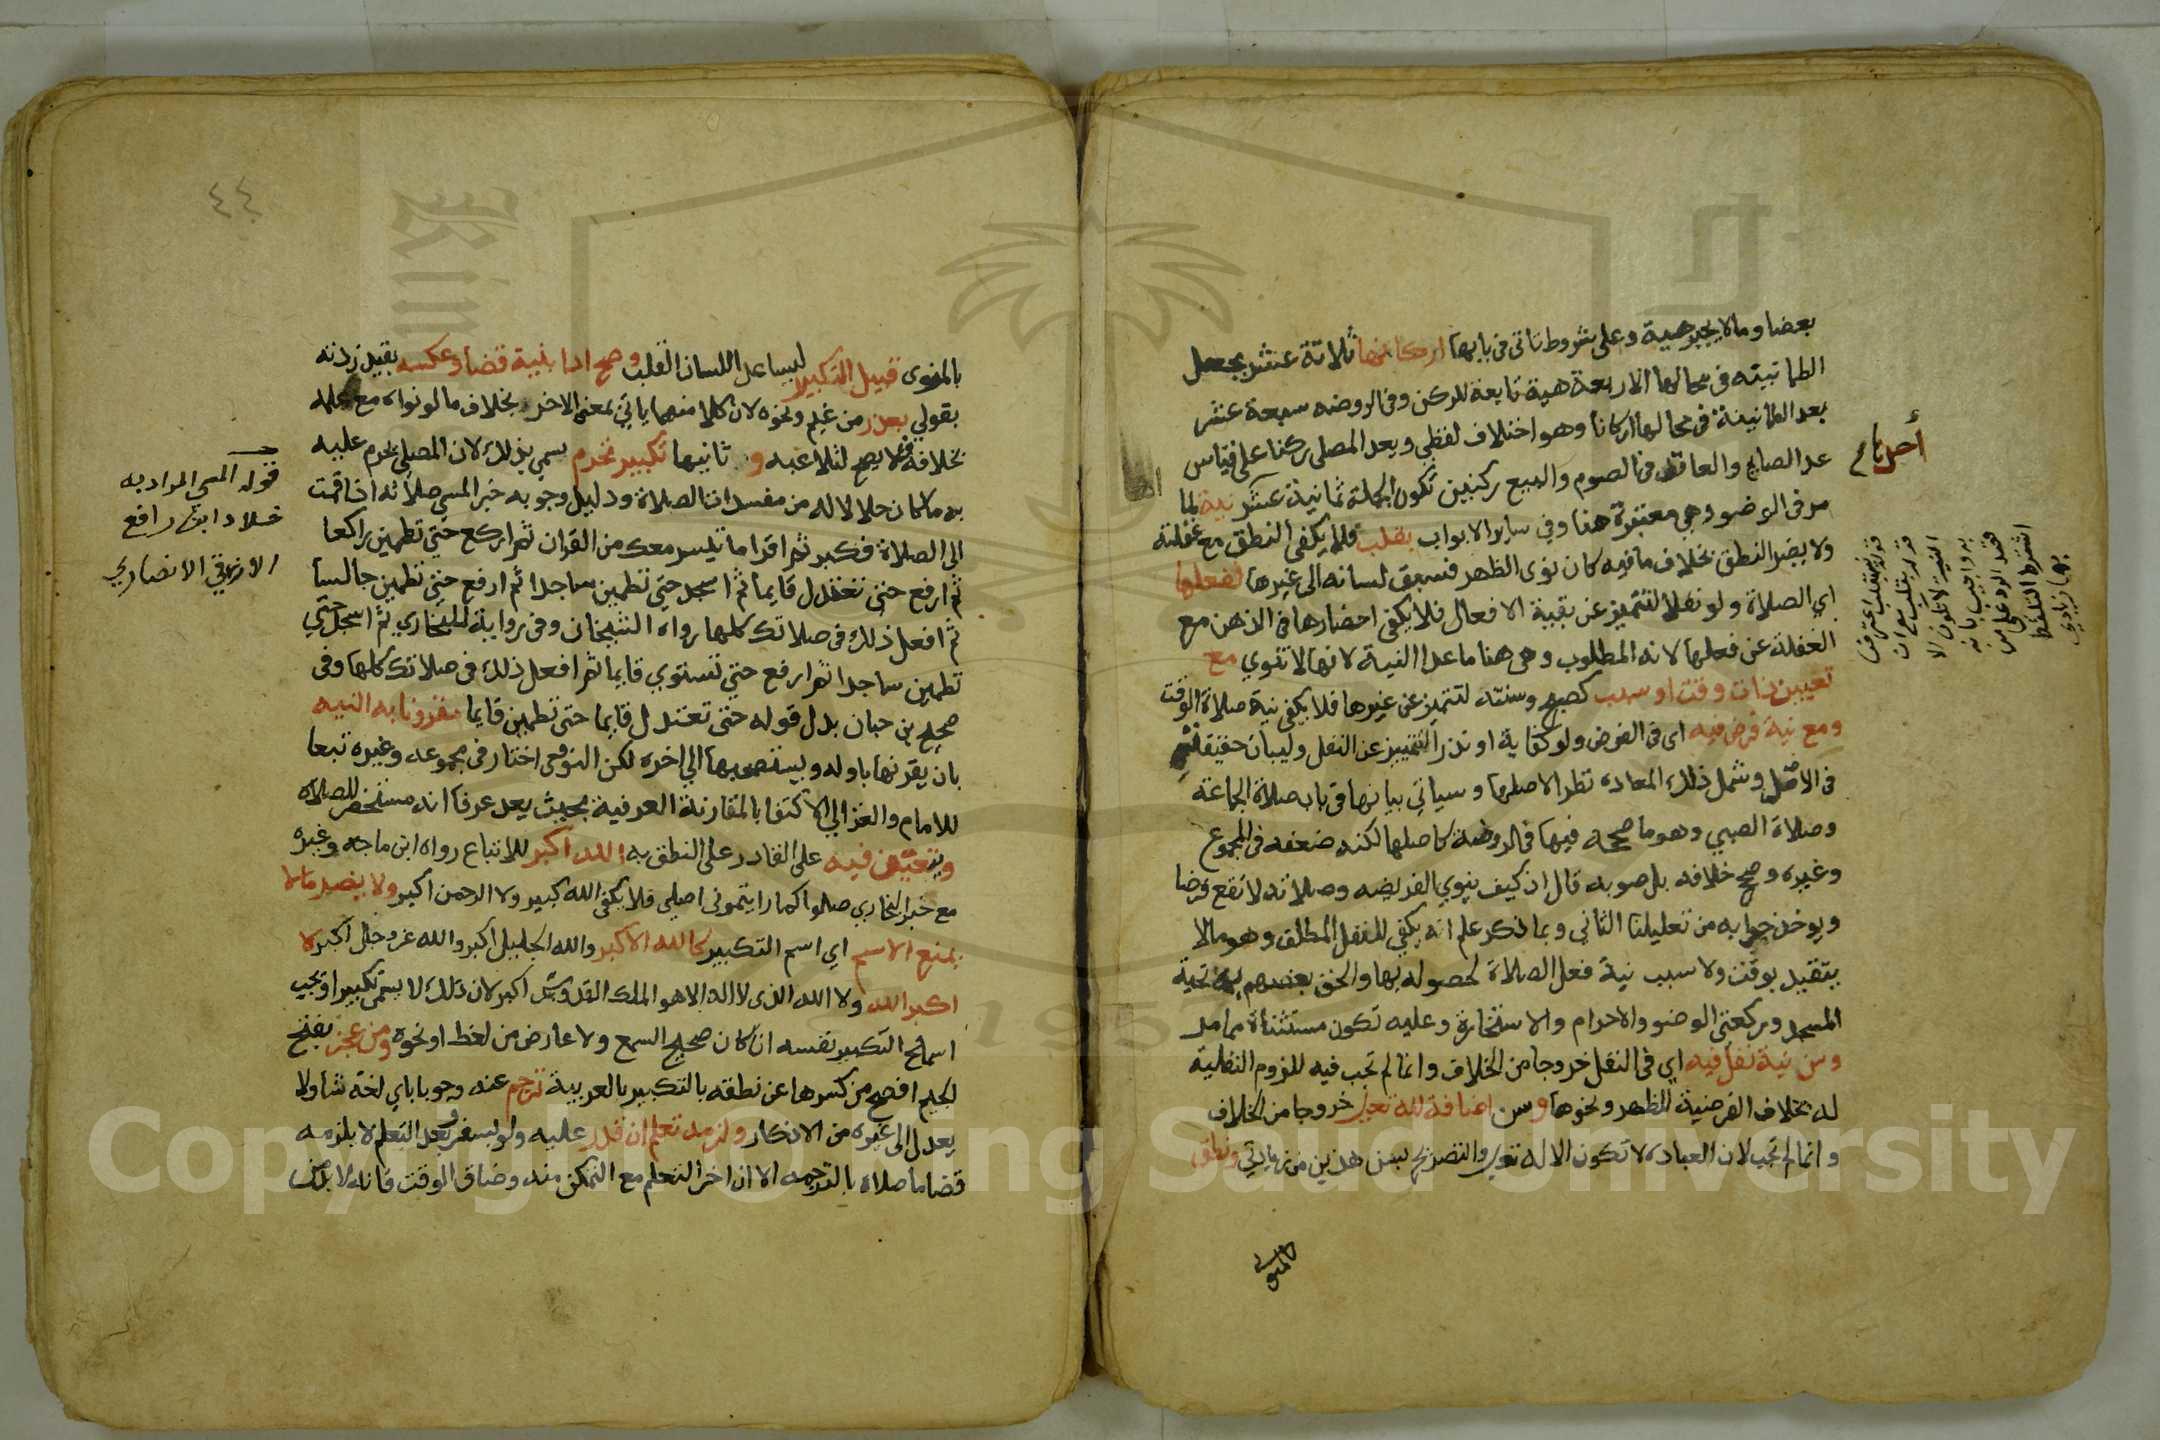 بعضا وما لا يجبر هيية وعلى شروط تاتي في بابها اركانها ثلاثة عشر بجعل
الطمانينه في محالها الاربعة هية تابعة للركن وفي الروضه سبعة عشر
بعد الطمانينة في محالها اركانا وهو اختلاف لفظي وبعد المصلي ركنا على قياس
عد الصايم والعاقد في الصوم والبيع ركنين تكون الجملة ثمانية عشر نية لما
مر في الوضو وهي معتبرة هنا وفي ساير الابواب بقلب فلا يكفي النطق مع غفلته
ولا يضر النطق بخلاف ما فيه كان نوى الظهر فسبق لسانه الى غيرها لفعلها
اي الصلاة ولو نفلا لتتميز عن بقية الافعال فلا يكفي احضارها في الذهن مع
الغفلة عن فعلها لانه المطلوب وهي هنا ما عدا النية لانها لا تنوي مع
تعيين ذات وقت او سبب كصبح وسنته لتتميز عن غيرها فلا يكفي نية صلاة الوقت
ومع نية فرض فيه اي في الفرض ولو كفاية او نذرا لتتميز عن النفل ولبيان حقيقته
في الاصل وشمل ذلك المعاده نظرا لاصلها وسياتي بيانها في باب صلاة الجماعة
وصلاة الصبي وهو ما صححه فيها في الروضة كاصلها لكنه ضعفه في المجموع
وغيره وصحح خلافه بل صوبه قال اذ كيف ينوي الفريضه وصلاته لا تقع فرضا
ويوخذ جوابه من تعليلنا الثاني وبما ذكر علم انه يكفي للنفل المطلق وهو ما لا
يتقيد بوقت ولا سبب نية فعل الصلاة لحصوله بها والحق بعضهم به تحية
المسجد وركعتي الوضو والاحرام والاستخارة وعليه تكون مستثناة مما مر
وسن نية نفل فيه اي في النفل خروجا من الخلاف وانما لم تجب فيه للزوم النفلية
له بخلاف الفرضية للظهر ونحوها وسن اضافة لله تعالى خروجا من الخلاف
وانما لم تجب لان العباده لا تكون الا له تعالى والتصريح بسن هذين من زيادتي ونطق
بالمنوى
احرنا م
قوله بقلب اعترض
قوله بقلب بان
النية لا تكون الا
به واجيب بانه
قصد الرد على من
اشترط التلفظ
بها زيادي
٤٤
بالمنوى قبيل التكبير ليساعد اللسان القلب وصح ادا بنية قضا وعكسه بقيد زدته
بقولي بعذر من غيم ونحوه لان كلا منهما ياتي بمعنى الاخر بخلاف ما لو نواه مع علمه
بخلافه فلا يصح لتلاعبه و ثانيها تكبير تحرم سمي بذلك لان المصلي يحرم عليه
به ما كان حلالا له من مفسدات الصلاة ودليل وجوبه خبر المسي صلاته اذا قمت
الى الصلاة فكبر ثم اقرا ما تيسر معك من القران ثم اركع حتي تطمين راكعا
ثم ارفع حتي تعتدل قايما ثم اسجد حتي تطمين ساجدا ثم ارفع حتي تطمين جالسا
ثم افعل ذلك في صلاتك كلها رواه الشيخان وفي رواية للبخاري ثم اسجد حتي
تطمين ساجدا ثم ارفع حتي تستوي قايما ثم افعل ذلك في صلاتك كلها وفي
صحيح بن حبان بدل قوله حتى تعتدل قايما حتى تطمين قايما مقرونا به النيه
بان يقرنها باوله ويستصحبها الي اخره لكن النووي اختار في مجموعه وغيره تبعا
للامام والغزالي الاكتفا بالمقارنة العرفية بحيث يعد عرفا انه مستحضر للصلاه
ويتعين فيه على القادر على النطق به الله اكبر للاتباع رواه ابن ماجه وغيره
مع خبر البخاري صلوا كما رايتموني اصلي فلا يكفي الله كبير ولا الرحمن اكبر ولا يضر ما لا
يمنع الاسم اي اسم التكبير كالله الاكبر والله الجليل اكبر والله عز وجل اكبر لا
اكبر الله ولا الله الذي لا اله الا هو الملك القدوس اكبر لان ذلك لا يسمى تكبيرا ويجب
اسماع التكبير نفسه ان كان صحيح السمع ولا عارض من لغط او نحوه ومن عجز بفتح
الجيم افصح من كسرها عن نطقه بالتكبير بالعربية ترجم عنه وجوبا باي لغة شا ولا
يعدل الى غيره من الاذكار ولزمه تعلم ان قدر عليه ولو بسفر وبعد التعلم لا يلزمه
قضا ما صلاه بالترجمه الا ان اخر التعلم مع التمكن منه وضاق الوقت فانه لا بد من
قوله المسي المراد به
خلاد ابن رافع
الزرقي الانصاري